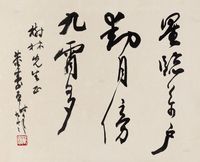 星臨萬戶
動月傍
九霄多
樹林先生正